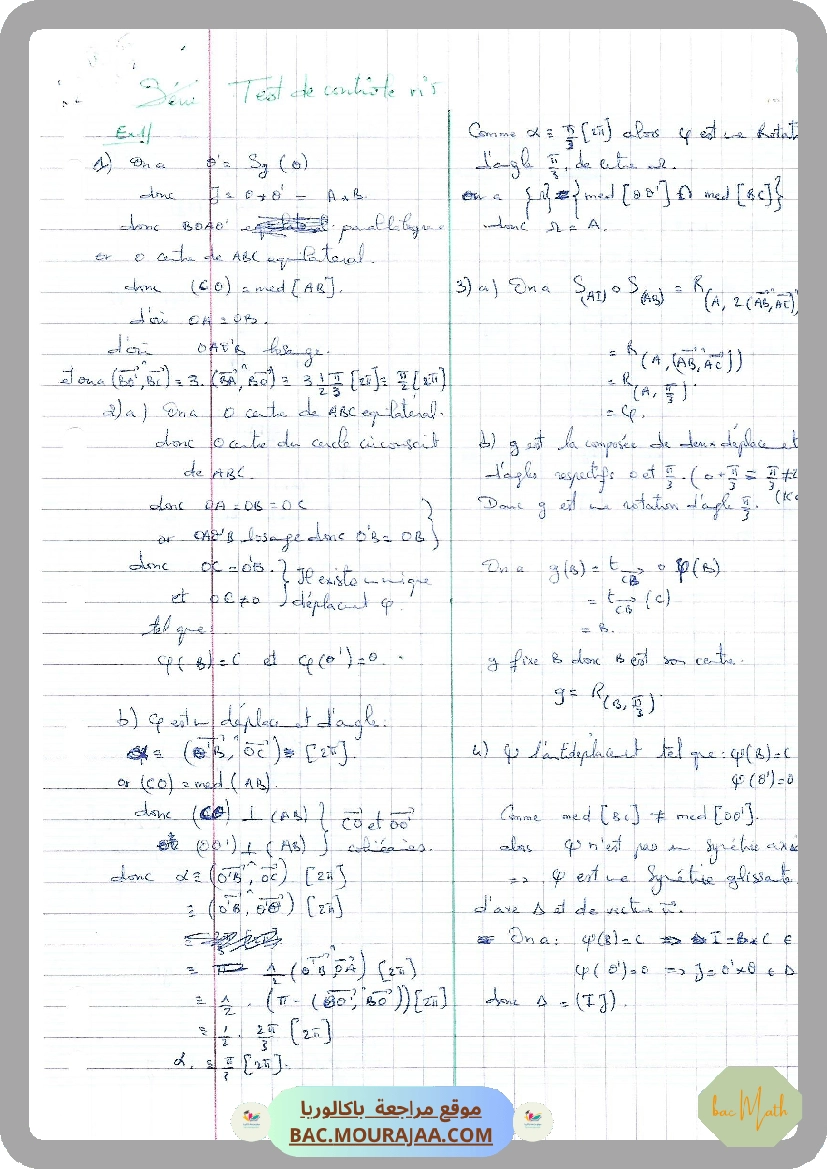 Série Test de contrôle n°5
Ex1//
1) On a O' = S_J (O)
donc J = O * O' = A * B.
donc BOAO' parallélogramme
or O centre de ABC équilatéral.
donc (CO) = med [AB].
d'où OA = OB.
d'où OAO'B losange.
et on a (BO', BC) ≡ 3. (BA, BO) ≡ 3 1/2 π/3 [2π] ≡ π/2 [2π]
2) a) On a O centre de ABC équilatéral.
donc O centre du cercle circonscrit
de ABC.
donc OA = OB = OC
or OAO'B losange donc O'B = OB
donc OC = O'B. } Il existe un unique
et OC ≠ 0 } déplacement φ.
tel que
φ(B) = C et φ(O') = O.
b) φ est un déplacement d'angle.
α ≡ (O'B, OC) [2π].
or (CO) = med (AB).
donc (CO) ⊥ (AB) } CO et OO'
et (OO') ⊥ (AB) } colinéaires.
donc α ≡ (O'B, OC) [2π]
≡ (O'B, O'O) [2π]
≡ 1/2 (O'B, O'A) [2π]
≡ 1/2 . (π - (BO, BO')) [2π]
≡ 1/2 . 2π/3 [2π]
α ≡ π/3 [2π].
Comme α ≡ π/3 [2π] alors φ est une Rotat
d'angle π/3, de centre Ω.
on a {Ω} = {med [OO'] ∩ med [BC]}
donc Ω = A.
3) a) On a S(AI) o S(AB) = R(A, 2(AB, AI))
= R(A, (AB, AC))
= R(A, π/3)
= φ.
b) g est la composée de deux déplacement
d'angles respectifs 0 et π/3. (0 + π/3 = π/3 ≠ 2
Donc g est une rotation d'angle π/3.
On a g(B) = t_CB o φ(B)
= t_CB (C)
= B.
g fixe B donc B est son centre.
g = R(B, π/3)
4) ψ l'antidéplacement tel que : ψ(B) = C
ψ(O') = O
Comme med [BC] ≠ med [OO'].
alors ψ n'est pas une symétrie axia
=> ψ est une Symétrie glissante
d'axe Δ et de vecteur u.
On a : ψ(B) = C => I = B * C ∈
ψ(O') = O => J = O' * O ∈ Δ
donc Δ = (IJ).
موقع مراجعة باكالوريا
BAC.MOURAJAA.COM
bac Math